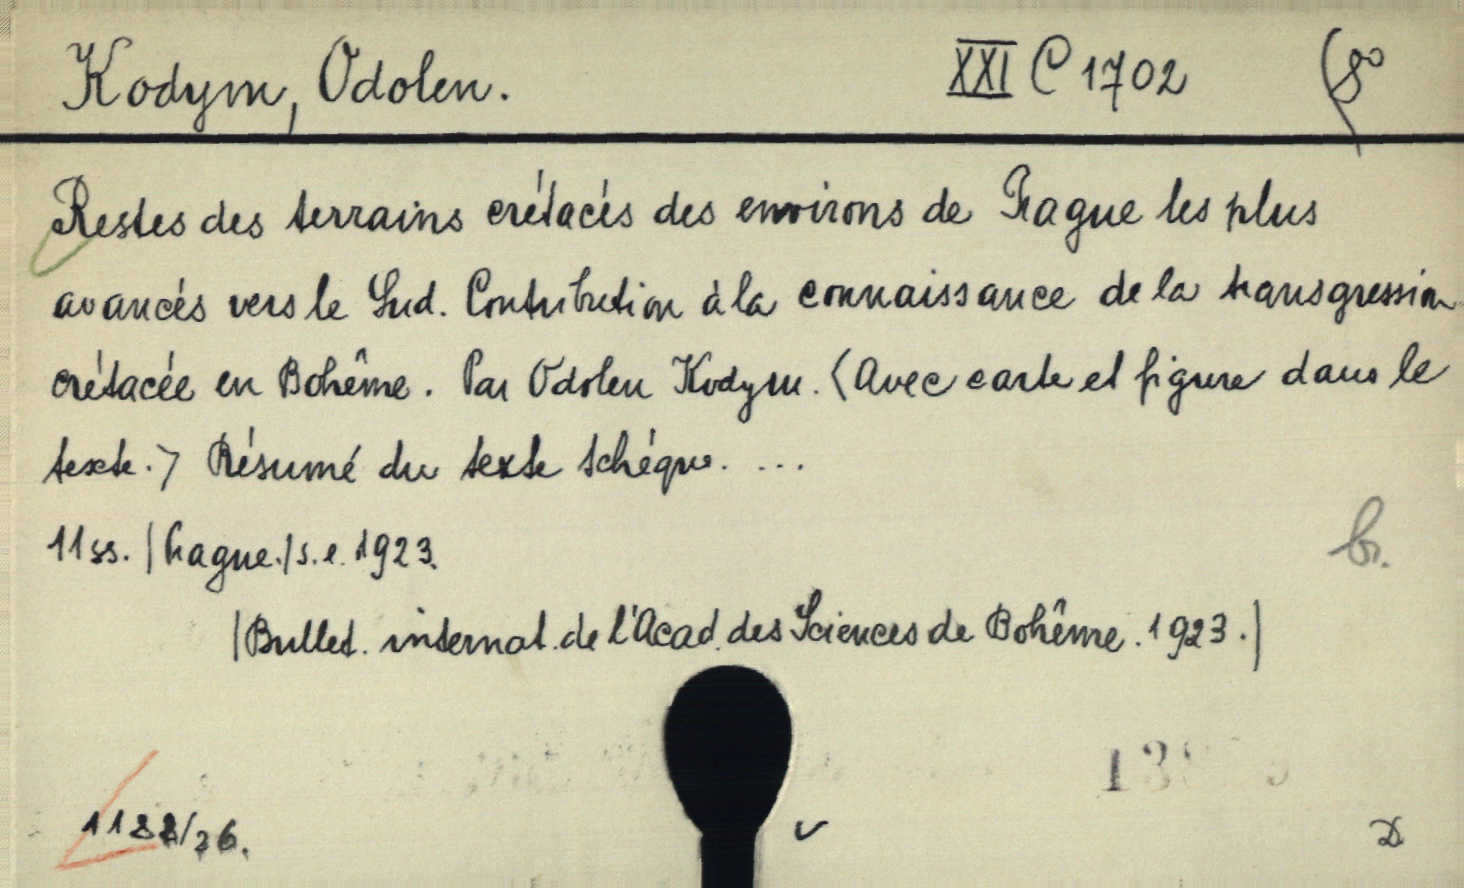 Kodym, Odolen. XXI C 1702 8°
Restes des terrains crétacés des environs de Prague les plus
avancés vers le Sud. Contribution à la connaissance de la transgression
crétacée en Bohême. Par Odolen Kodym. (Avec carte et figure dans le
texte.) Résumé du texte tchéque. ...
11 ss. |Prague.| s.e. 1923.
br.
|Bullet. internat. de l'Acad. des Sciences de Bohême. 1923.|
1188/26.
D